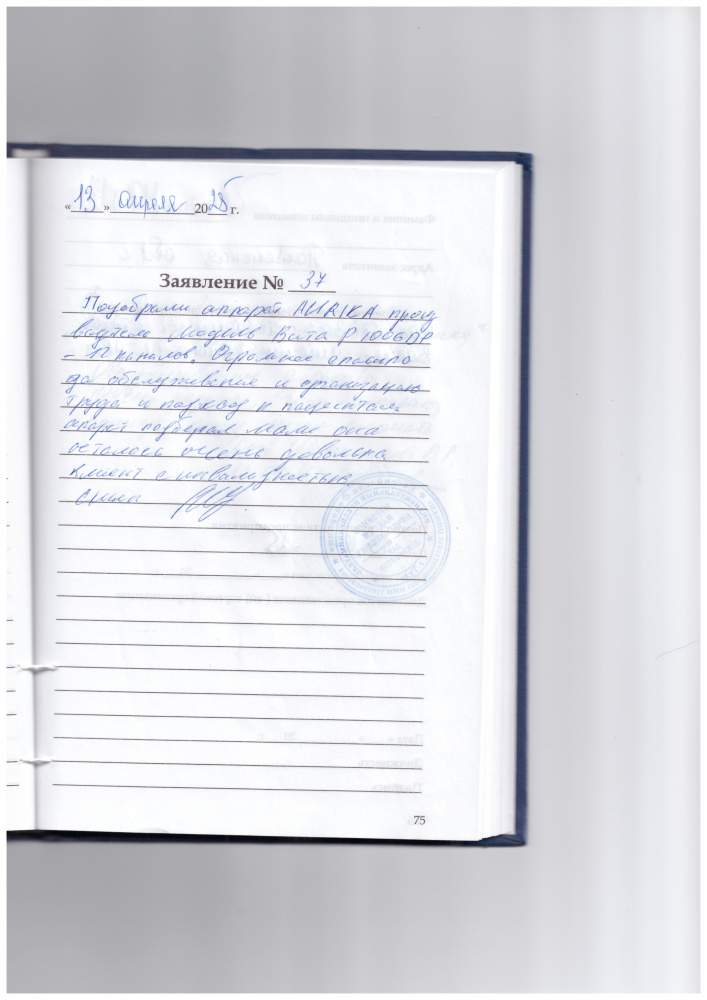 « 13 » апреля 2025 г.
Заявление № 37
Подобрали аппарат AURIKA произ
водтель модель
каналов. Огромное спасибо
да обслуживание и организацию
труда и подход к пациентам.
апарат подберал маме она
осталась очень довольна
Клиент с инвалидностью
75